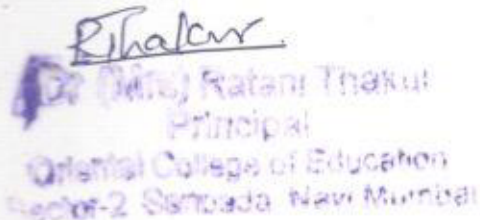 RThakur
Dr (Mrs) Ratani Thakur
Principal
Oriental College of Education
Sector-2 Sanpada Navi Mumbai